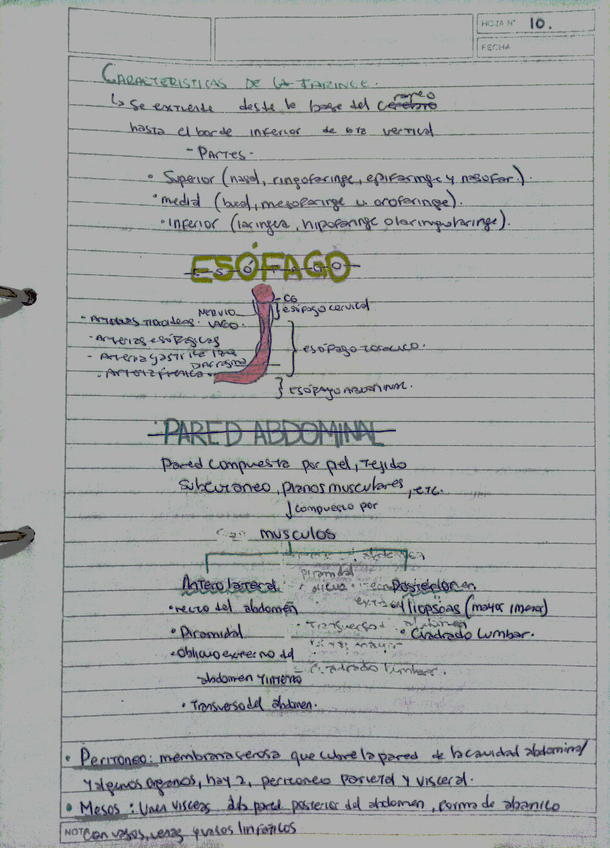 HOJA N° 10.
FECHA
CARACTERISTICAS DE LA FARINGE.
Se extiende desde la base del craneo
hasta el borde inferior de 6ta vertical
- PARTES -
• Superior (nasal, rinofaringe, epifaringe y nasofar.).
• media (bucal, mesofaringe u orofaringe).
• Inferior (laringea, hipofaringe o laringofaringe).
ESÓFAGO
C6
NERVIO VAGO
esófago cervical
- Arterias tiroideas.
- Arterias esófagicas
- Arteria gastrica izq
- Arteria frenica
ESÓFAGO TORACICO.
ESÓFAGO ABDOMINAL.
PARED ABDOMINAL
Pared compuesta por piel, Tejido
subcutaneo, planos musculares, etc.
compuesto por
musculos
Anterolateral
• recto del abdomen
• Piramidal
• Oblicuo externo del
abdomen y interno
• Transverso del abdomen.
Posterior
• Iliopsoas (mayor i menor)
• Cuadrado Lumbar.
• Peritoneo: membrana serosa que cubre la pared de la cavidad abdominal
y algunos organos, hay 2, peritoneo parietal y visceral.
• Mesos: Unen visceras a la pared posterior del abdomen, forma de abanico
con vasos, venas y vasos linfaticos
NOT